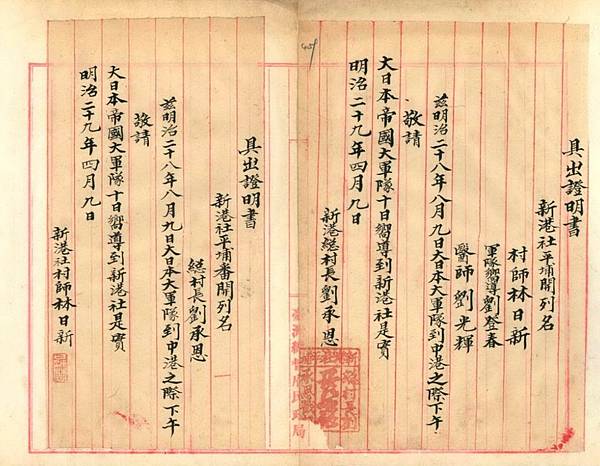 具出證明書
新港社平埔開列名
村師林日新
軍隊嚮導劉登春
醫師劉光輝
茲明治二十八年八月九日大日本大軍隊到中港之際下午
敬請
大日本帝國大軍隊十日嚮導到新港社是實
明治二十九年四月九日
新港緫村長劉承恩
臺灣總督府民政局
具出證明書
新港社平埔番開列名
緫村長劉承恩
茲明治二十八年八月九日大日本大軍隊到中港之際下午
敬請
大日本帝國大軍隊十日嚮導到新港社是實
明治二十九年四月九日
新港社村師林日新